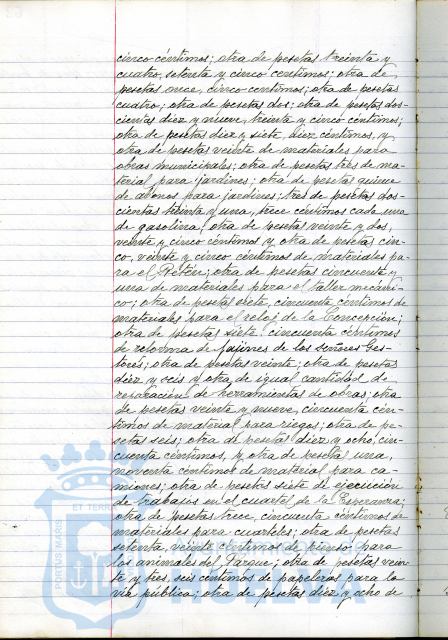 cinco céntimos; otra de pesetas treinta y
cuatro, setenta y cinco centimos; otra de
pesetas once, cinco centimos; otra de pesetas
cuatro; otra de pesetas dos; otra de pesetas dos-
cientas diez y nueve, treinta y cinco céntimos;
otra de pesetas diez y siete, diez céntimos, y
otra de pesetas veinte de materiales para
obras municipales; otra de pesetas tres de ma-
terial para jardines; otra de pesetas quince
de abonos para jardines; tres de pesetas dos-
cientas treinta y una, trece céntimos cada una
de gasolina; otra de pesetas veinte y dos,
veinte y cinco céntimos y otra de pesetas cin-
co, veinte y cinco céntimos de materiales pa-
ra el Retén; otra de pesetas cincuenta y
una de materiales para el taller mecáni-
co; otra de pesetas siete, cincuenta céntimos de
materiales para el reloj de la Concepción;
otra de pesetas siete cincuenta céntimos
de reforma de fajines de los señores Ges-
tores; otra de pesetas veinte; otra de pesetas
diez y seis y otra de igual cantidad de
reparación de herramientas de obras; otra
de pesetas veinte y nueve, cincuenta cén-
timos de material para riegos; otra de pe-
setas seis; otra de pesetas diez y ocho, cin-
cuenta céntimos, y otra de pesetas una,
noventa céntimos de material para ca-
miones; otra de pesetas siete de ejecución
de trabajos en el cuartel de la Esperanza;
otra de pesetas trece, cincuenta céntimos de
materiales para cuarteles; otra de pesetas
setenta, veinte céntimos de pienso para
los animales del Parque; otra de pesetas vein-
te y tres, seis centimos de papeleros para la
vía pública; otra de pesetas diez y ocho de
PORTUS MARIS
ET TERRA
HUELVA